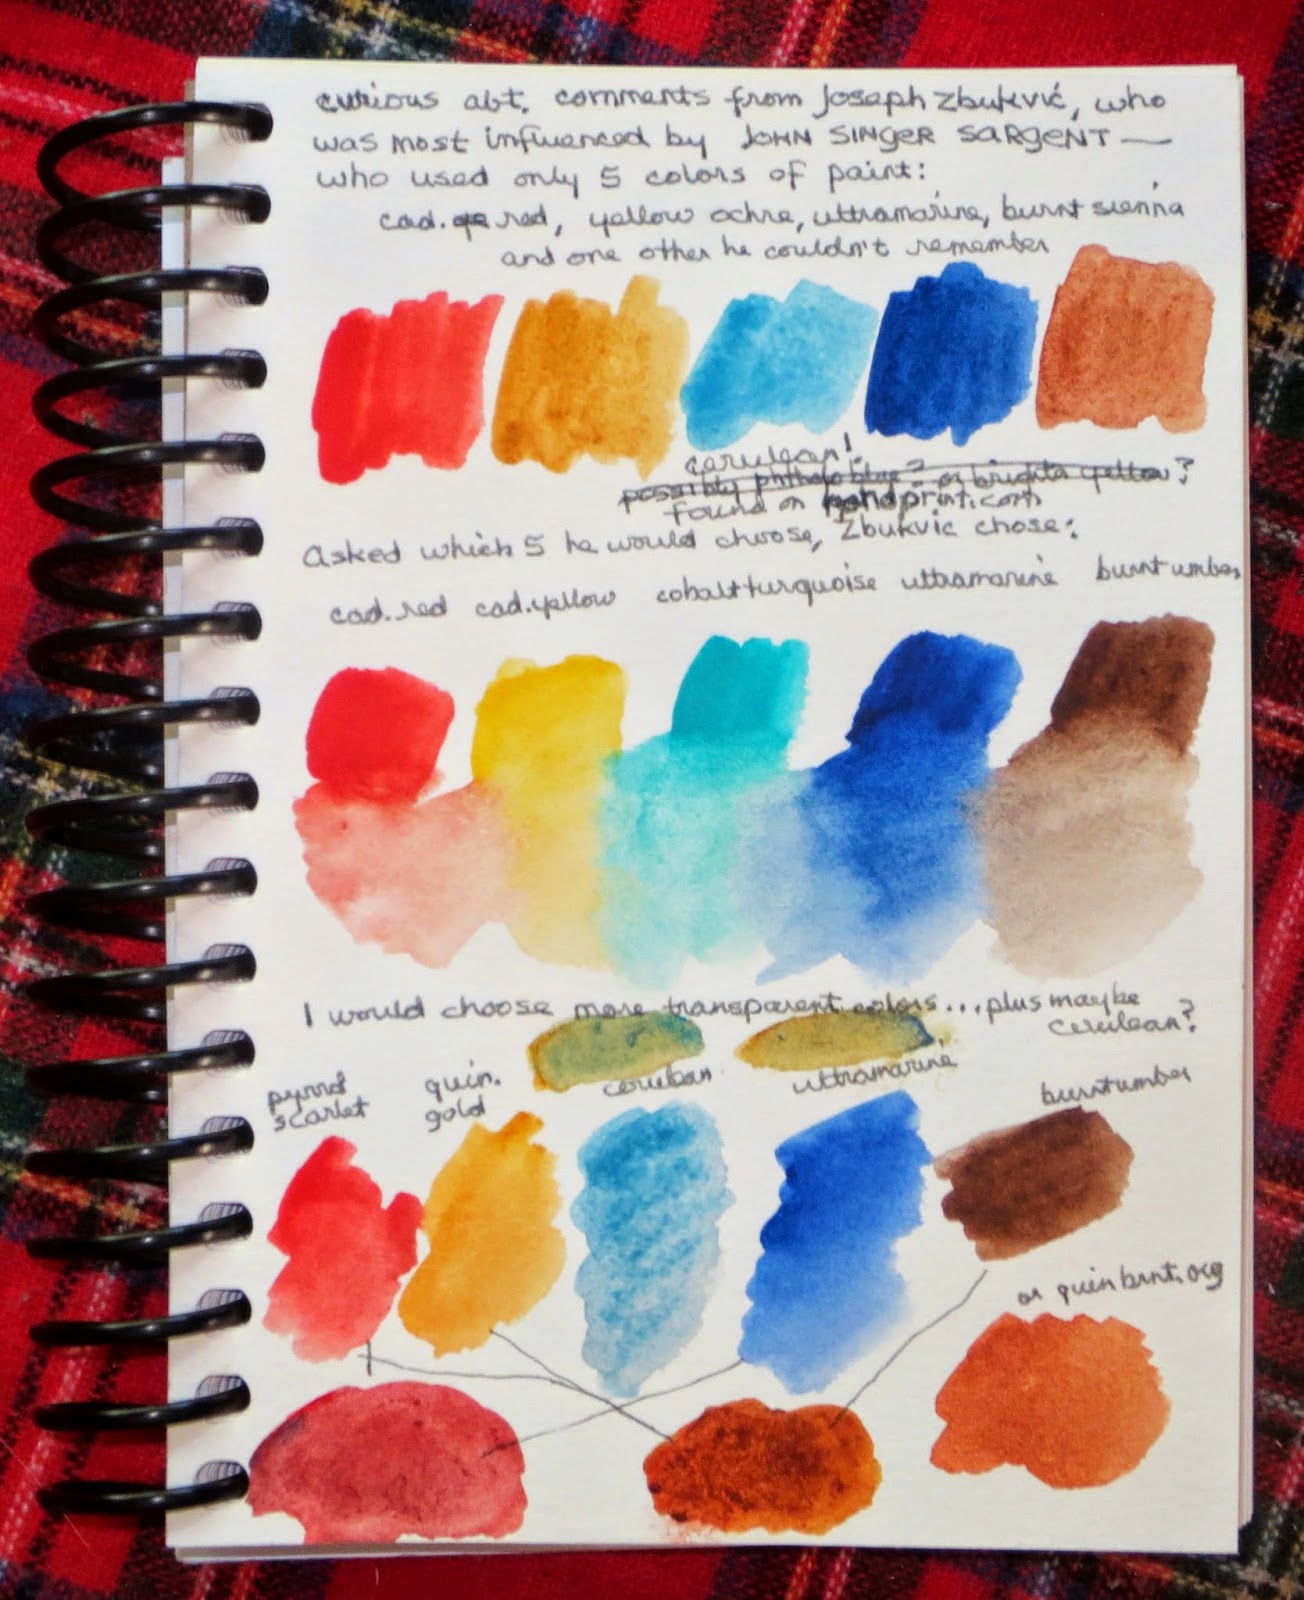 curious abt. comments from Joseph Zbukvić, who
was most influenced by JOHN SINGER SARGENT —
who used only 5 colors of paint:
cad. red, yellow ochre, ultramarine, burnt sienna
and one other he couldn't remember
cerulean!
possibly phthalo blue? or bright yellow?
found on handprint.com
Asked which 5 he would choose, Zbukvic chose:
cad.red cad.yellow cobalt turquoise ultramarine burnt umber
I would choose more transparent colors...plus maybe
cerulean?
pyrrol
scarlet
quin.
gold
cerulean
ultramarine
burnt umber
or quin brnt. org